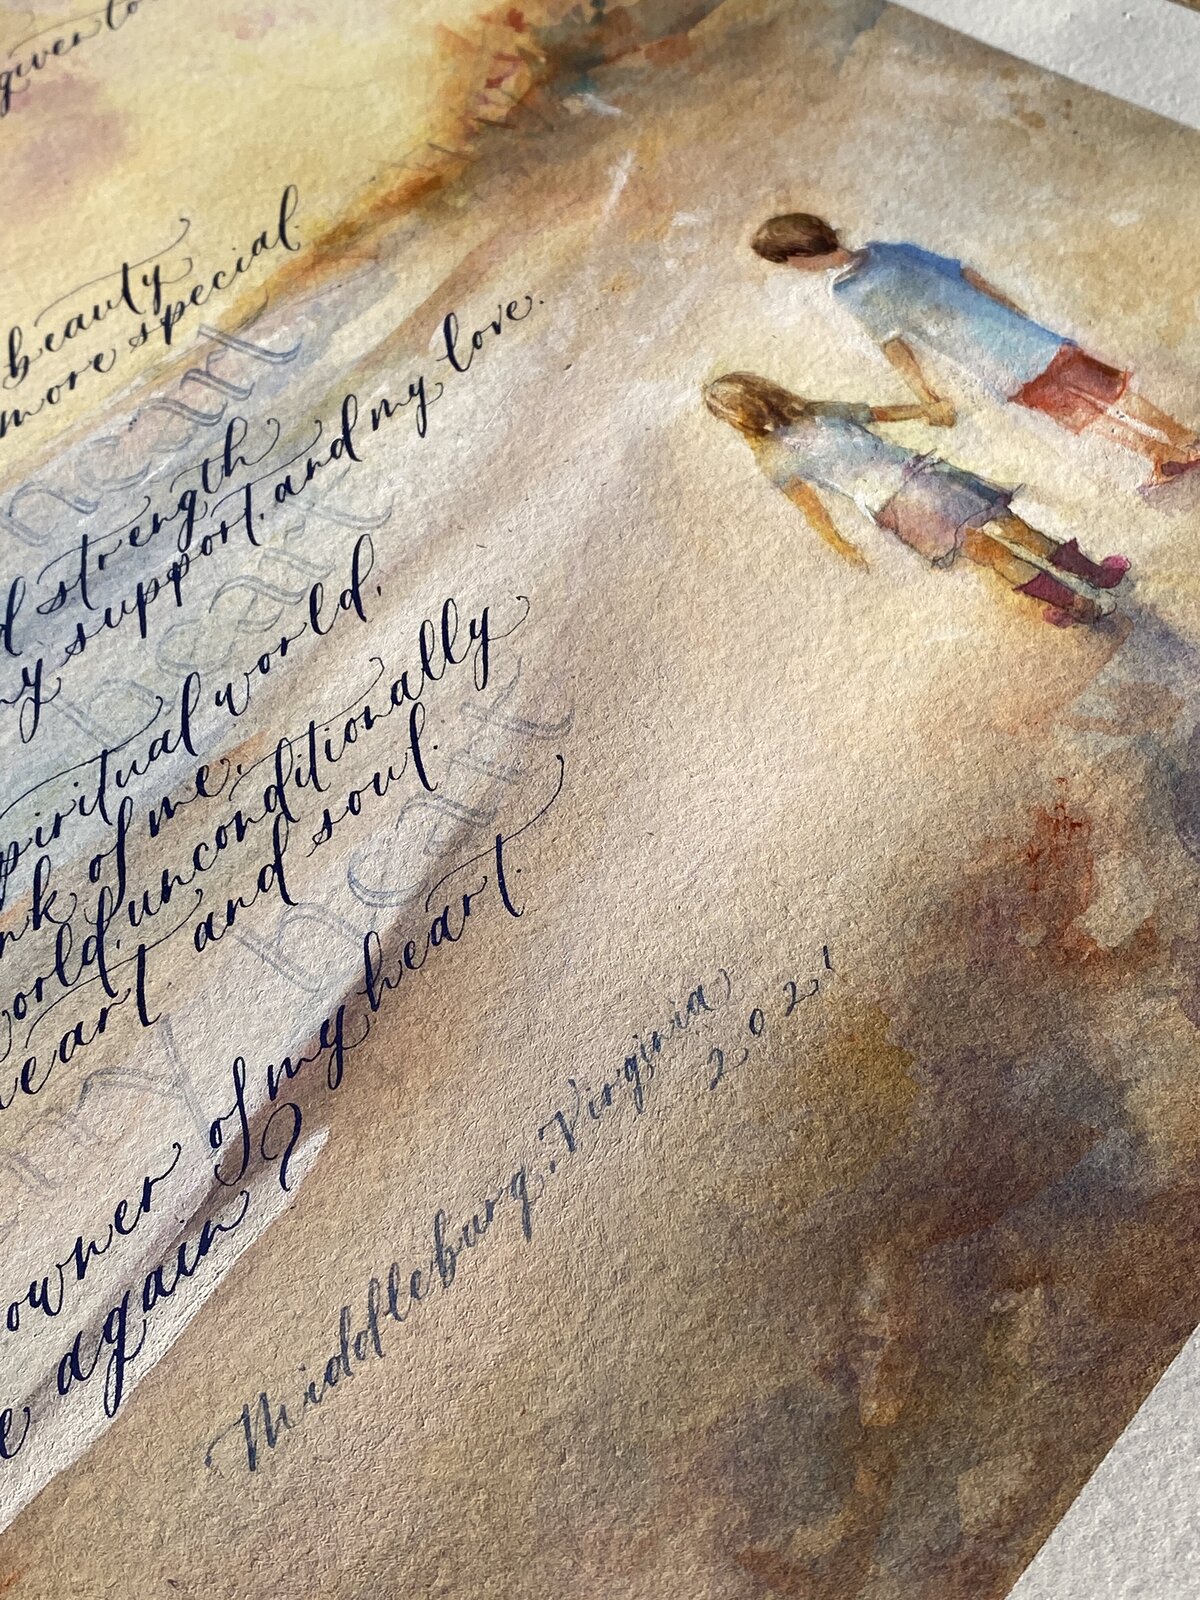 given to
beauty
more special
strength
support, and my love.
spiritual world,
of me,
world, unconditionally
heart and soul.
owner of my heart
again?
Middleburg, Virginia
2021
heart
heart
my heart